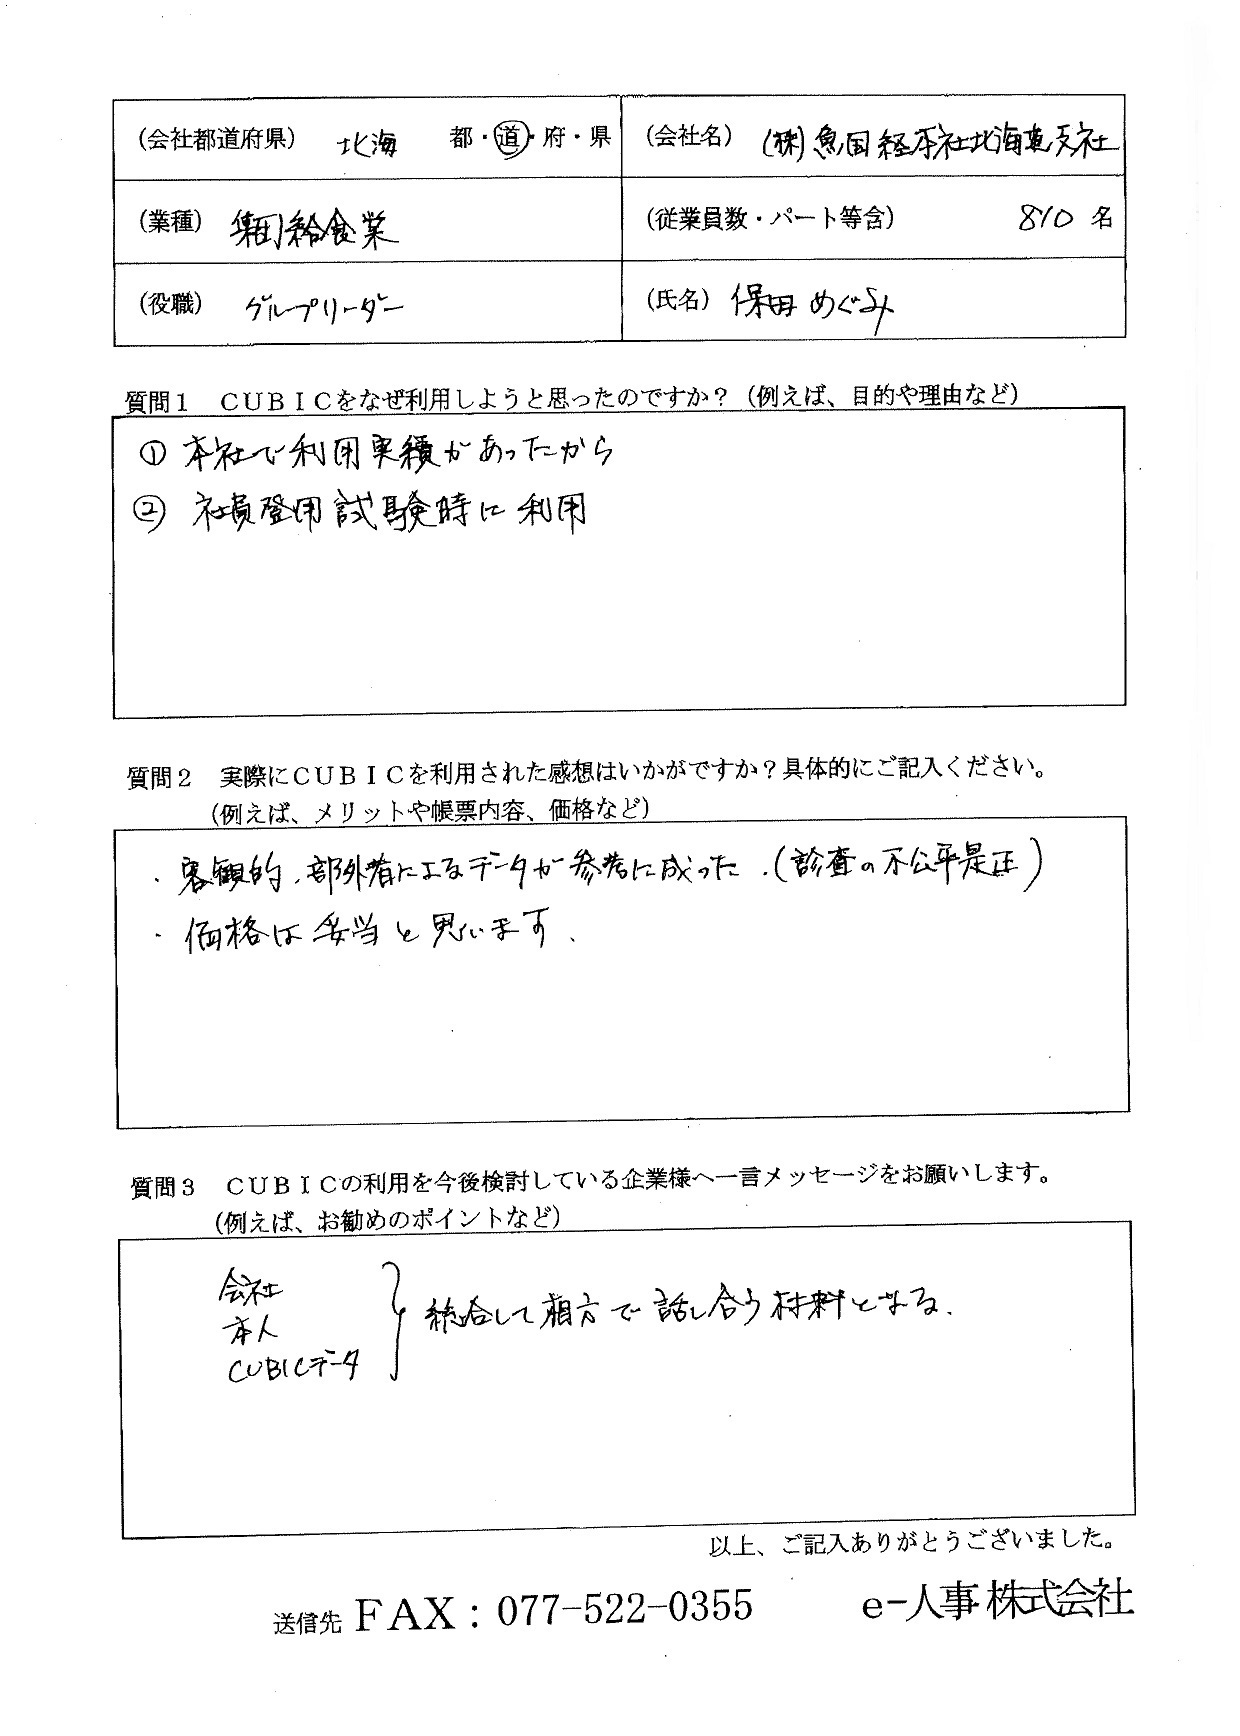 (会社都道府県) 北海 都・道・府・県
(会社名) (株)魚国総本社北海道支社
(業種) 集団給食業
(従業員数・パート等含) 810 名
(役職) グループリーダー
(氏名) 保田 めぐみ
質問1 CUBICをなぜ利用しようと思ったのですか?(例えば、目的や理由など)
① 本社で利用実績があったから
② 社員登用試験時に利用
質問2 実際にCUBICを利用された感想はいかがですか?具体的にご記入ください。
(例えば、メリットや帳票内容、価格など)
・客観的、部外者によるデータが参考に成った.(診査の不公平是正)
・価格は妥当と思います、
質問3 CUBICの利用を今後検討している企業様へ一言メッセージをお願いします。
(例えば、お勧めのポイントなど)
会社
本人
CUBICデータ
統合して相方で話し合う材料となる.
以上、ご記入ありがとうございました。
送信先 FAX:077-522-0355 e-人事株式会社